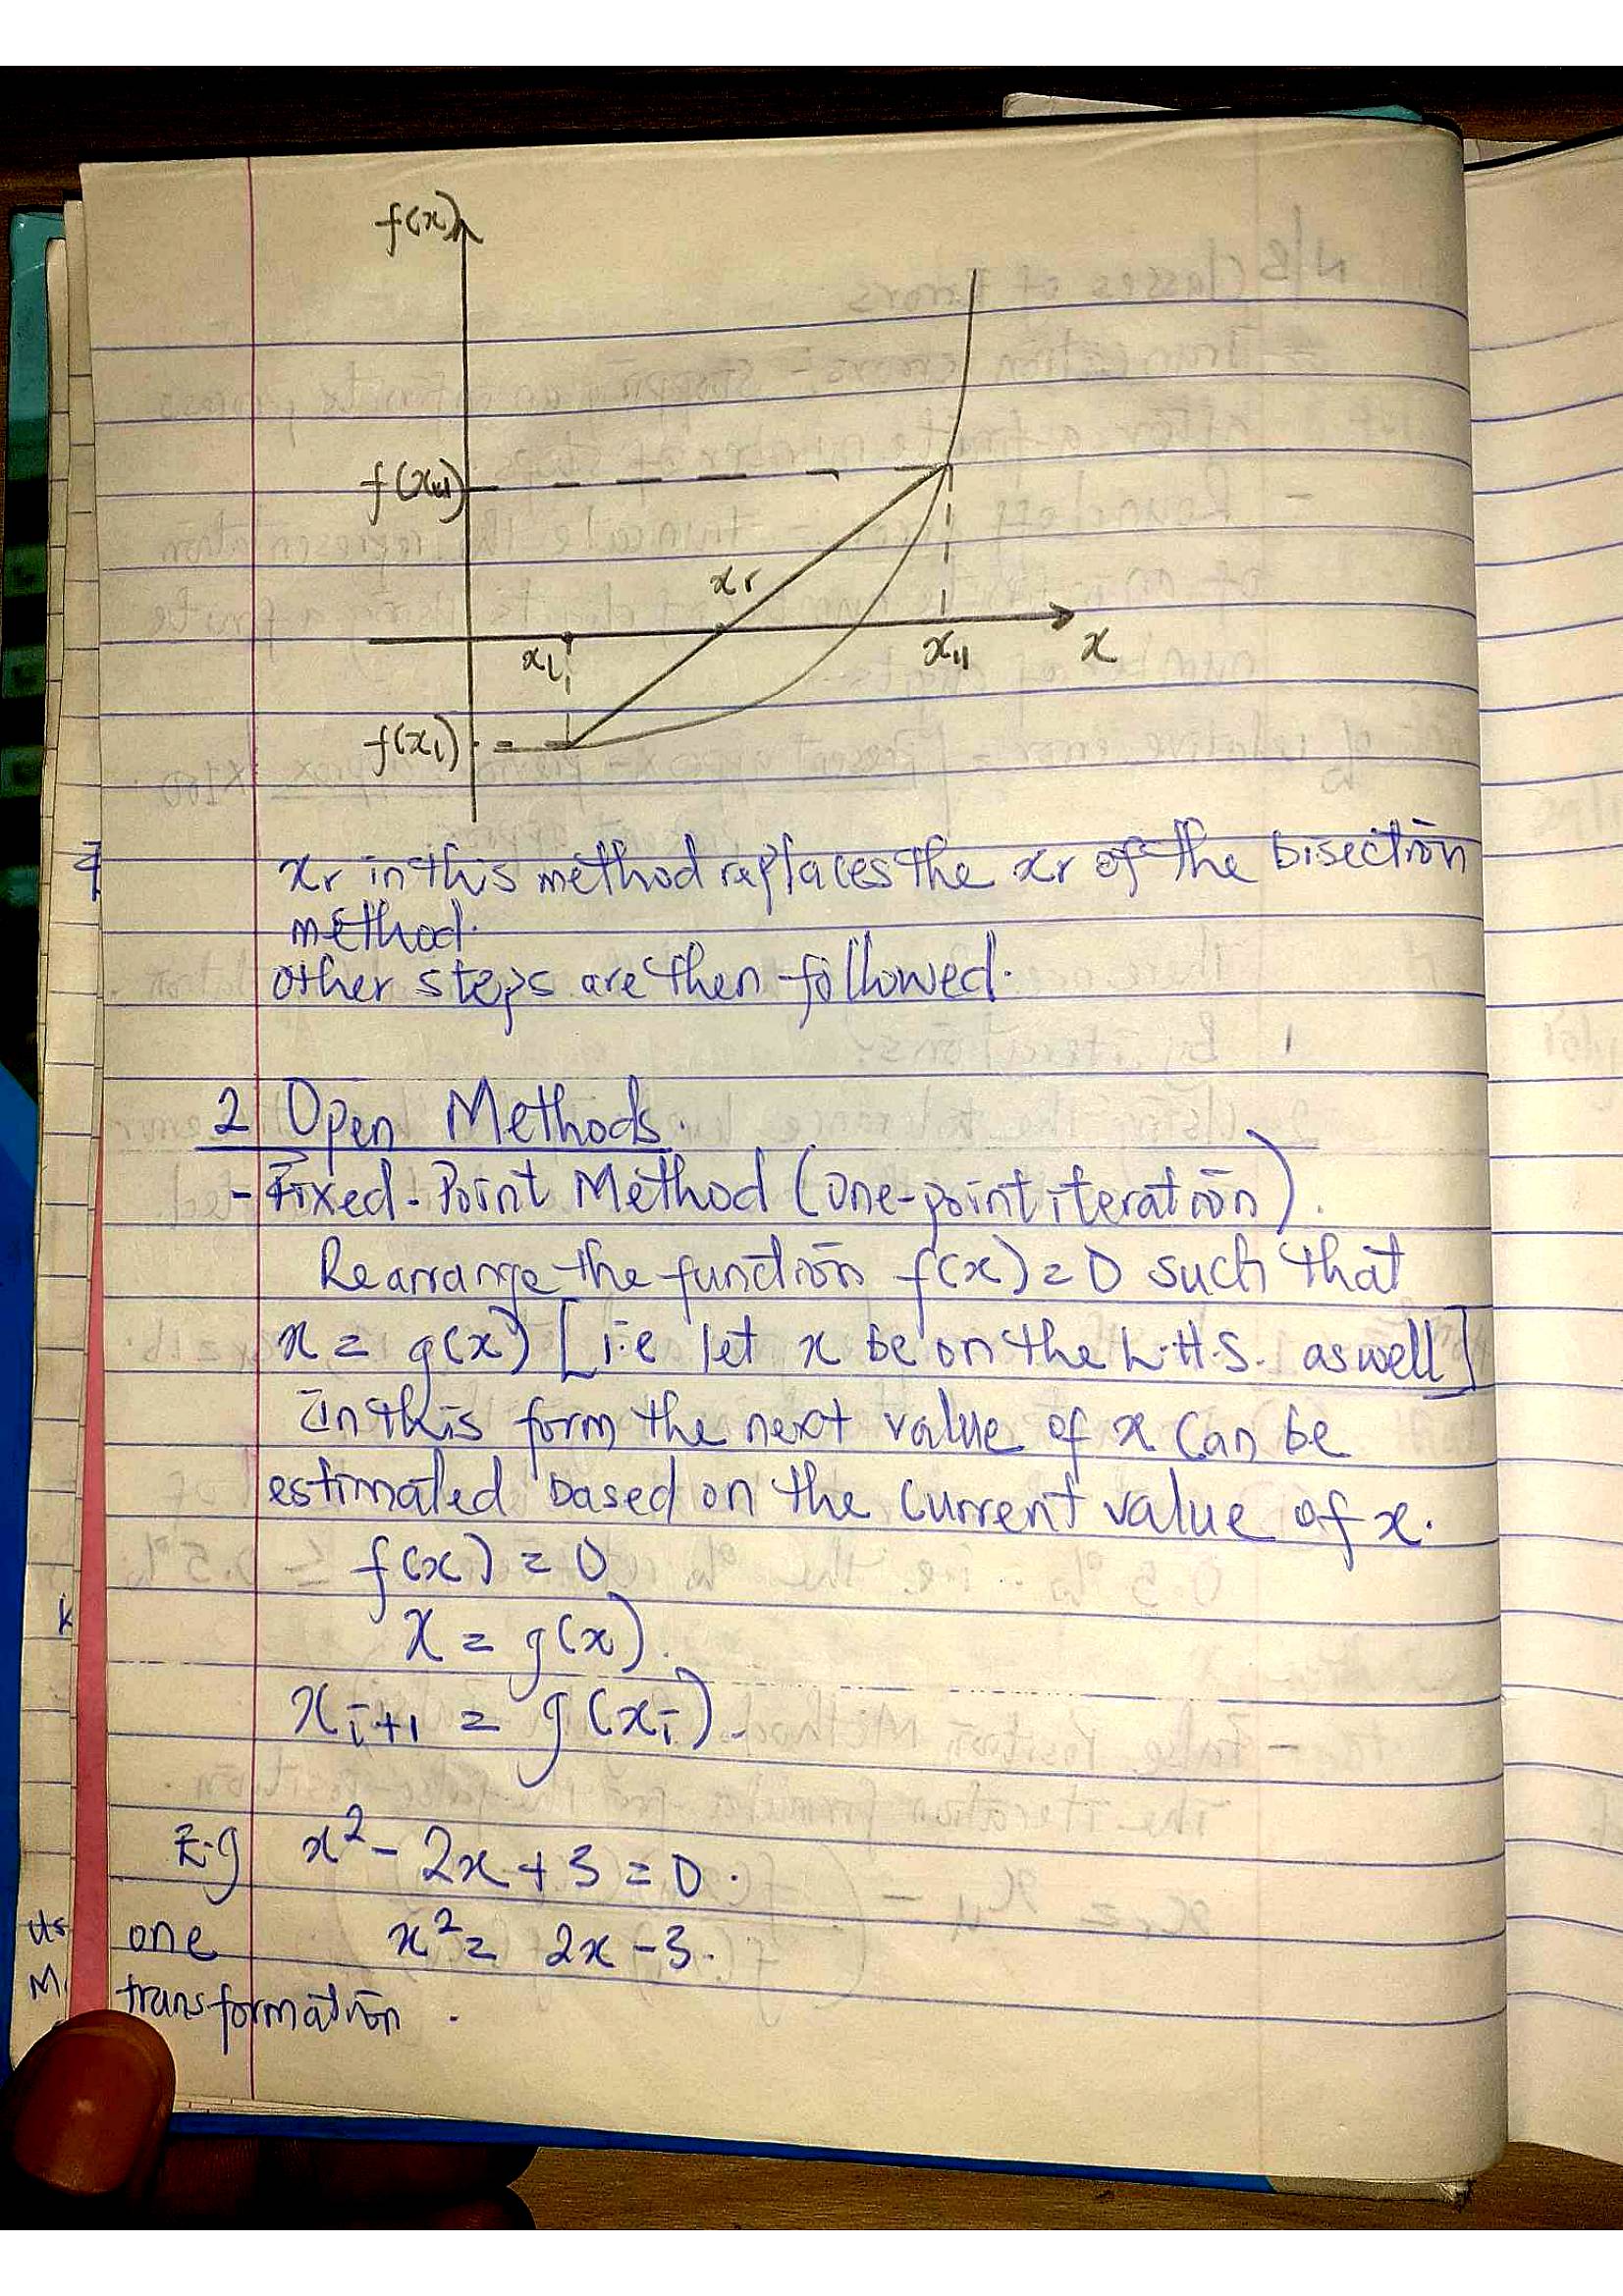 f(x)
f(xu)
xr
xl
xu
x
f(xl)
xr in this method replaces the xr of the bisection
method.
other steps are then followed.
2 Open Methods.
- Fixed-Point Method (one-point iteration).
Rearrange the function f(x) = 0 such that
x = g(x) [i.e let x be on the L.H.S. as well]
In this form the next value of x can be
estimated based on the current value of x.
f(x) = 0
x = g(x).
xi+1 = g(xi).
E.g x² - 2x + 3 = 0.
one x² = 2x - 3.
transformation.